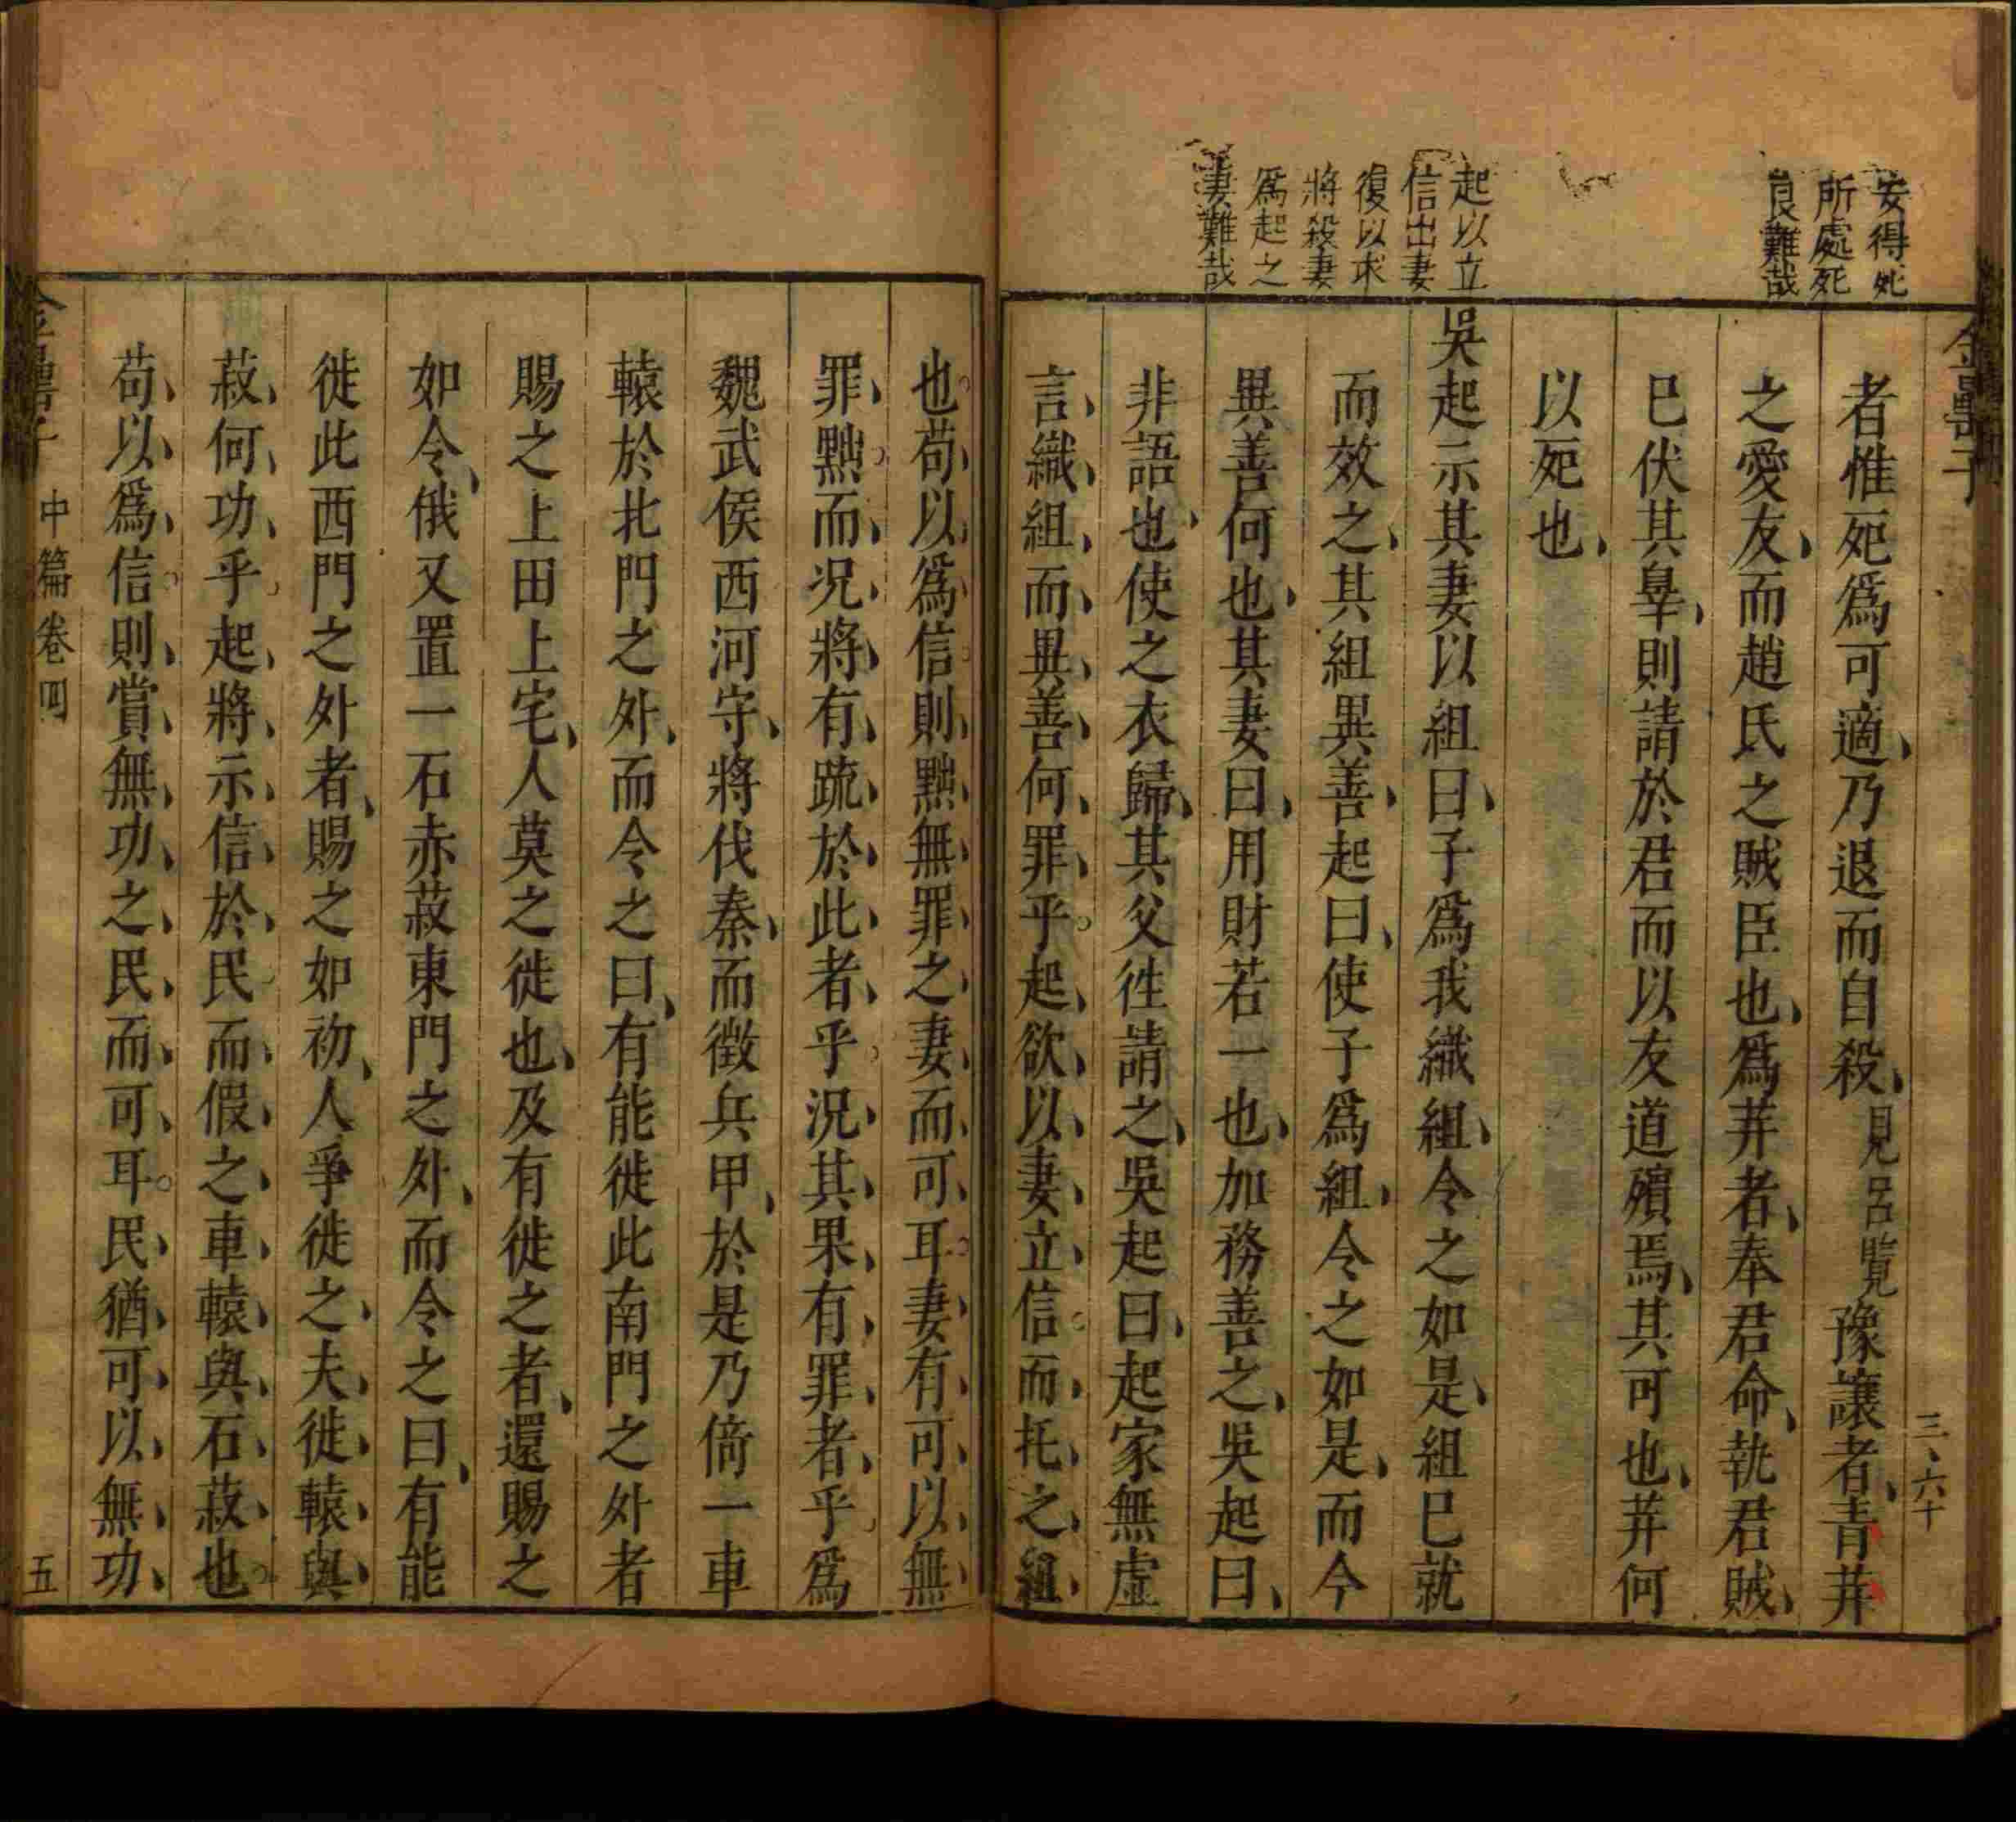 安得死
所處死
良難哉
起以立
信出妻
復以求
將殺妻
爲起之
妻難哉
金罍子
三、六十
者惟死爲可適、乃退而自殺、見呂覽豫讓者、青荓
之愛友、而趙氏之賊臣也、爲荓者、奉君命、執君賊、
已伏其辠、則請於君而以友道殯焉、其可也、荓何
以死也、
吳起示其妻以組曰、子爲我織組、令之如是、組已就
而效之、其組異善、起曰、使子爲組、令之如是、而今
異善何也、其妻曰、用財若一也、加務善之、吳起曰、
非語也、使之衣歸、其父徃請之、吳起曰、起家無虛
言、織、組、而、異、善、何、罪、乎。起、欲、以、妻、立、信。而、托、之、組、
也。苟、以、爲、信。則、黜、無、罪、之、妻、而、可、耳。妻、有、可、以、無、
罪、黜。而、况、將、有、䟽、於、此、者、乎。况、其、果、有、罪、者、乎。爲
魏武侯西河守、將伐秦、而徵兵甲、於是乃倚一車
轅於北門之外、而令之曰、有能徙此南門之外者
賜之上田上宅、人莫之徙也、及有徙之者、還賜之
如令、俄又置一石赤菽東門之外、而令之曰、有能
徙此西門之外者、賜之如初、人爭徙之、夫、徙、轅、與、
菽、何、功、乎。起、將、示、信、於、民。而、假、之、車、轅、與、石、菽、也。
苟、以、爲、信。則、賞、無、功、之、民、而、可、耳。民、猶、可、以、無、功、
金罍子
中篇卷四
五